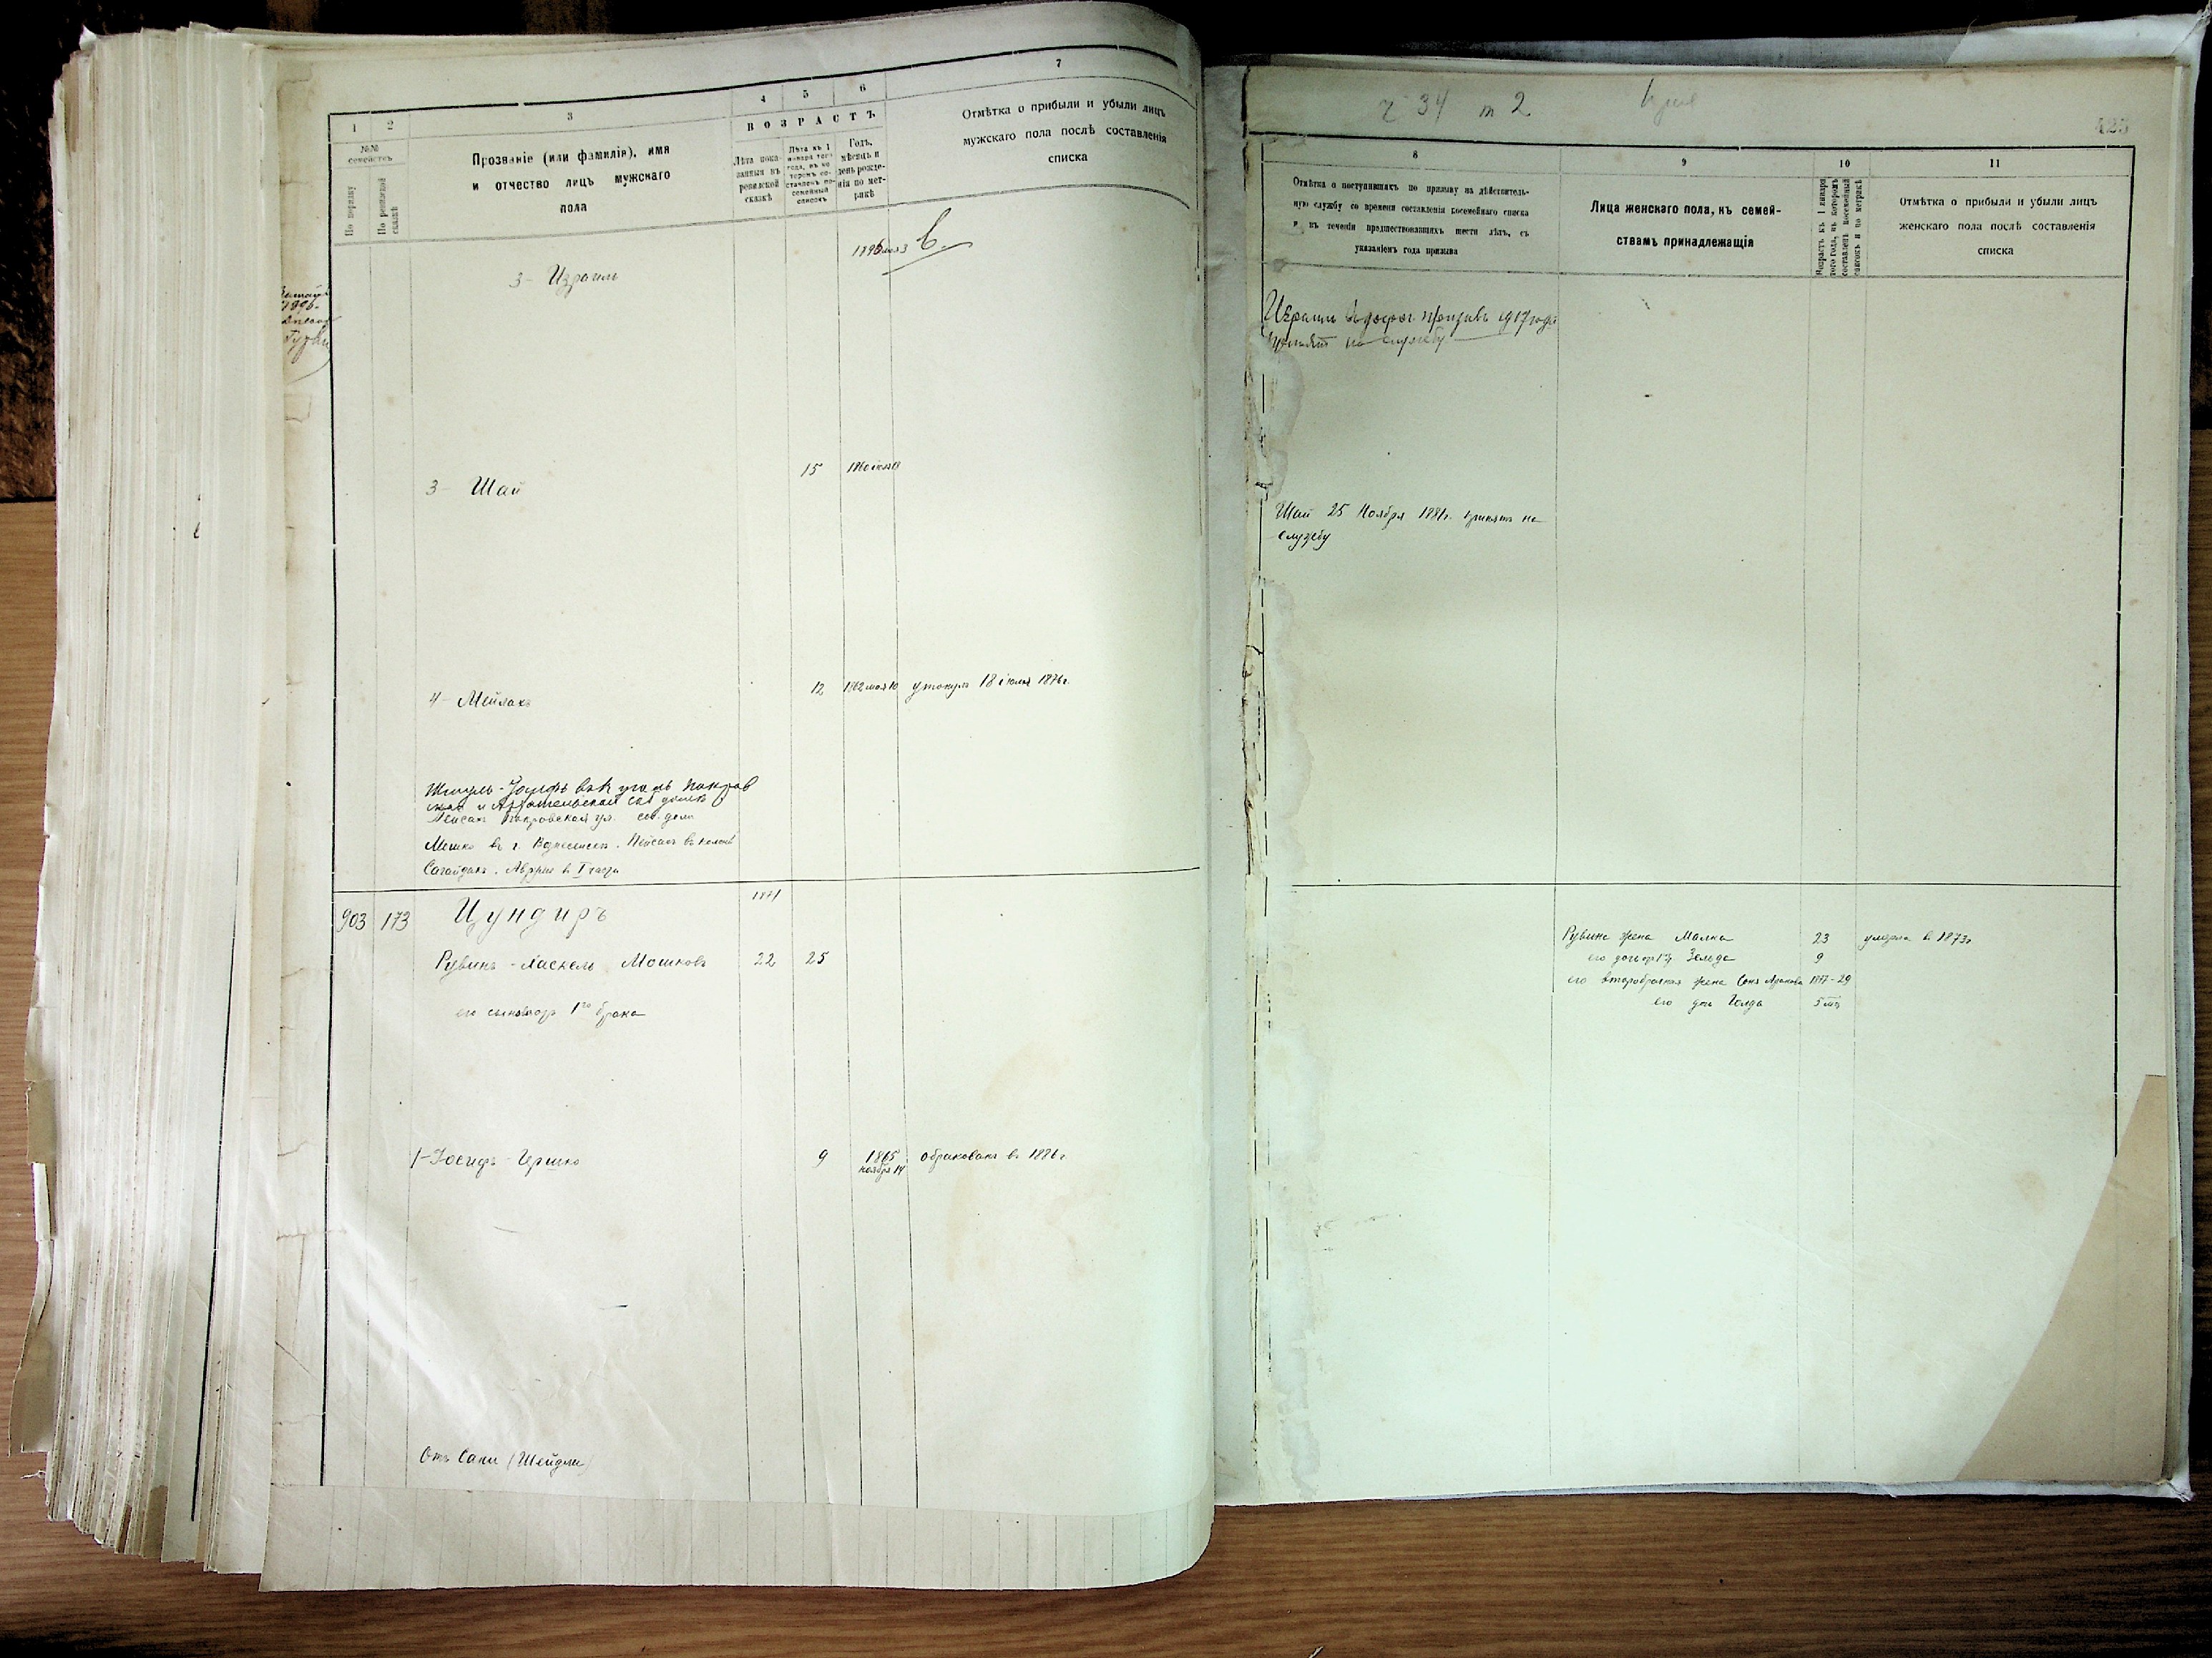 1
2
3
4
5
6
7
№№ семействъ
По порядку
По ревизской сказкѣ
Прозваніе (или фамилія), имя
и отчество лицъ мужскаго
пола
ВОЗРАСТЪ
Лѣта пока-
занныя въ
ревизской
сказкѣ
Лѣта къ 1
января того
года, въ ко
торомъ со-
ставленъ по-
семейный
списокъ
Годъ,
мѣсяцъ и
день рожде-
нія по мет-
рикѣ
Отмѣтка о прибыли и убыли лицъ
мужскаго пола послѣ составленія
списка
3 - Израиль
3 - Шай 15
4 - Мейлахъ 12 1862 мая 10 утонулъ 18 іюля 1876 г.
Пейсах Покровская ул. соб. дом
Мошко въ г.
Сагайдакъ.
903 173 Цундиръ 1871
Рувинъ-Хаскель Мошковъ 22 25
его сыновья 1го брака
1-Іосифъ-Гершко 9 1865 ноября 14 обракованъ в. 1886 г.
Отъ Сани (Шейдли)
ч 34 т 2
8
9
10
11
Отмѣтка о поступившихъ по призыву на дѣйствитель-
ную службу со времени составленія посемейнаго списка
и въ теченіи предшествовавшихъ шести лѣтъ, съ
указаніемъ года призыва
Лица женскаго пола, къ семей-
ствамъ принадлежащія
Возрастъ къ 1 января
того года, въ которомъ
составленъ посемейный
списокъ и по метрикѣ
Отмѣтка о прибыли и убыли лицъ
женскаго пола послѣ составленія
списка
Израиль призывъ 1917 года
принятъ на службу
Шай 25 Ноября 1881 г. принятъ на
службу
Рувина жена Малка 23 умерла в. 1873 г
его дочь Зельда 9
его второбрачная жена Соня 1877-29
его дочь Голда 5 м.